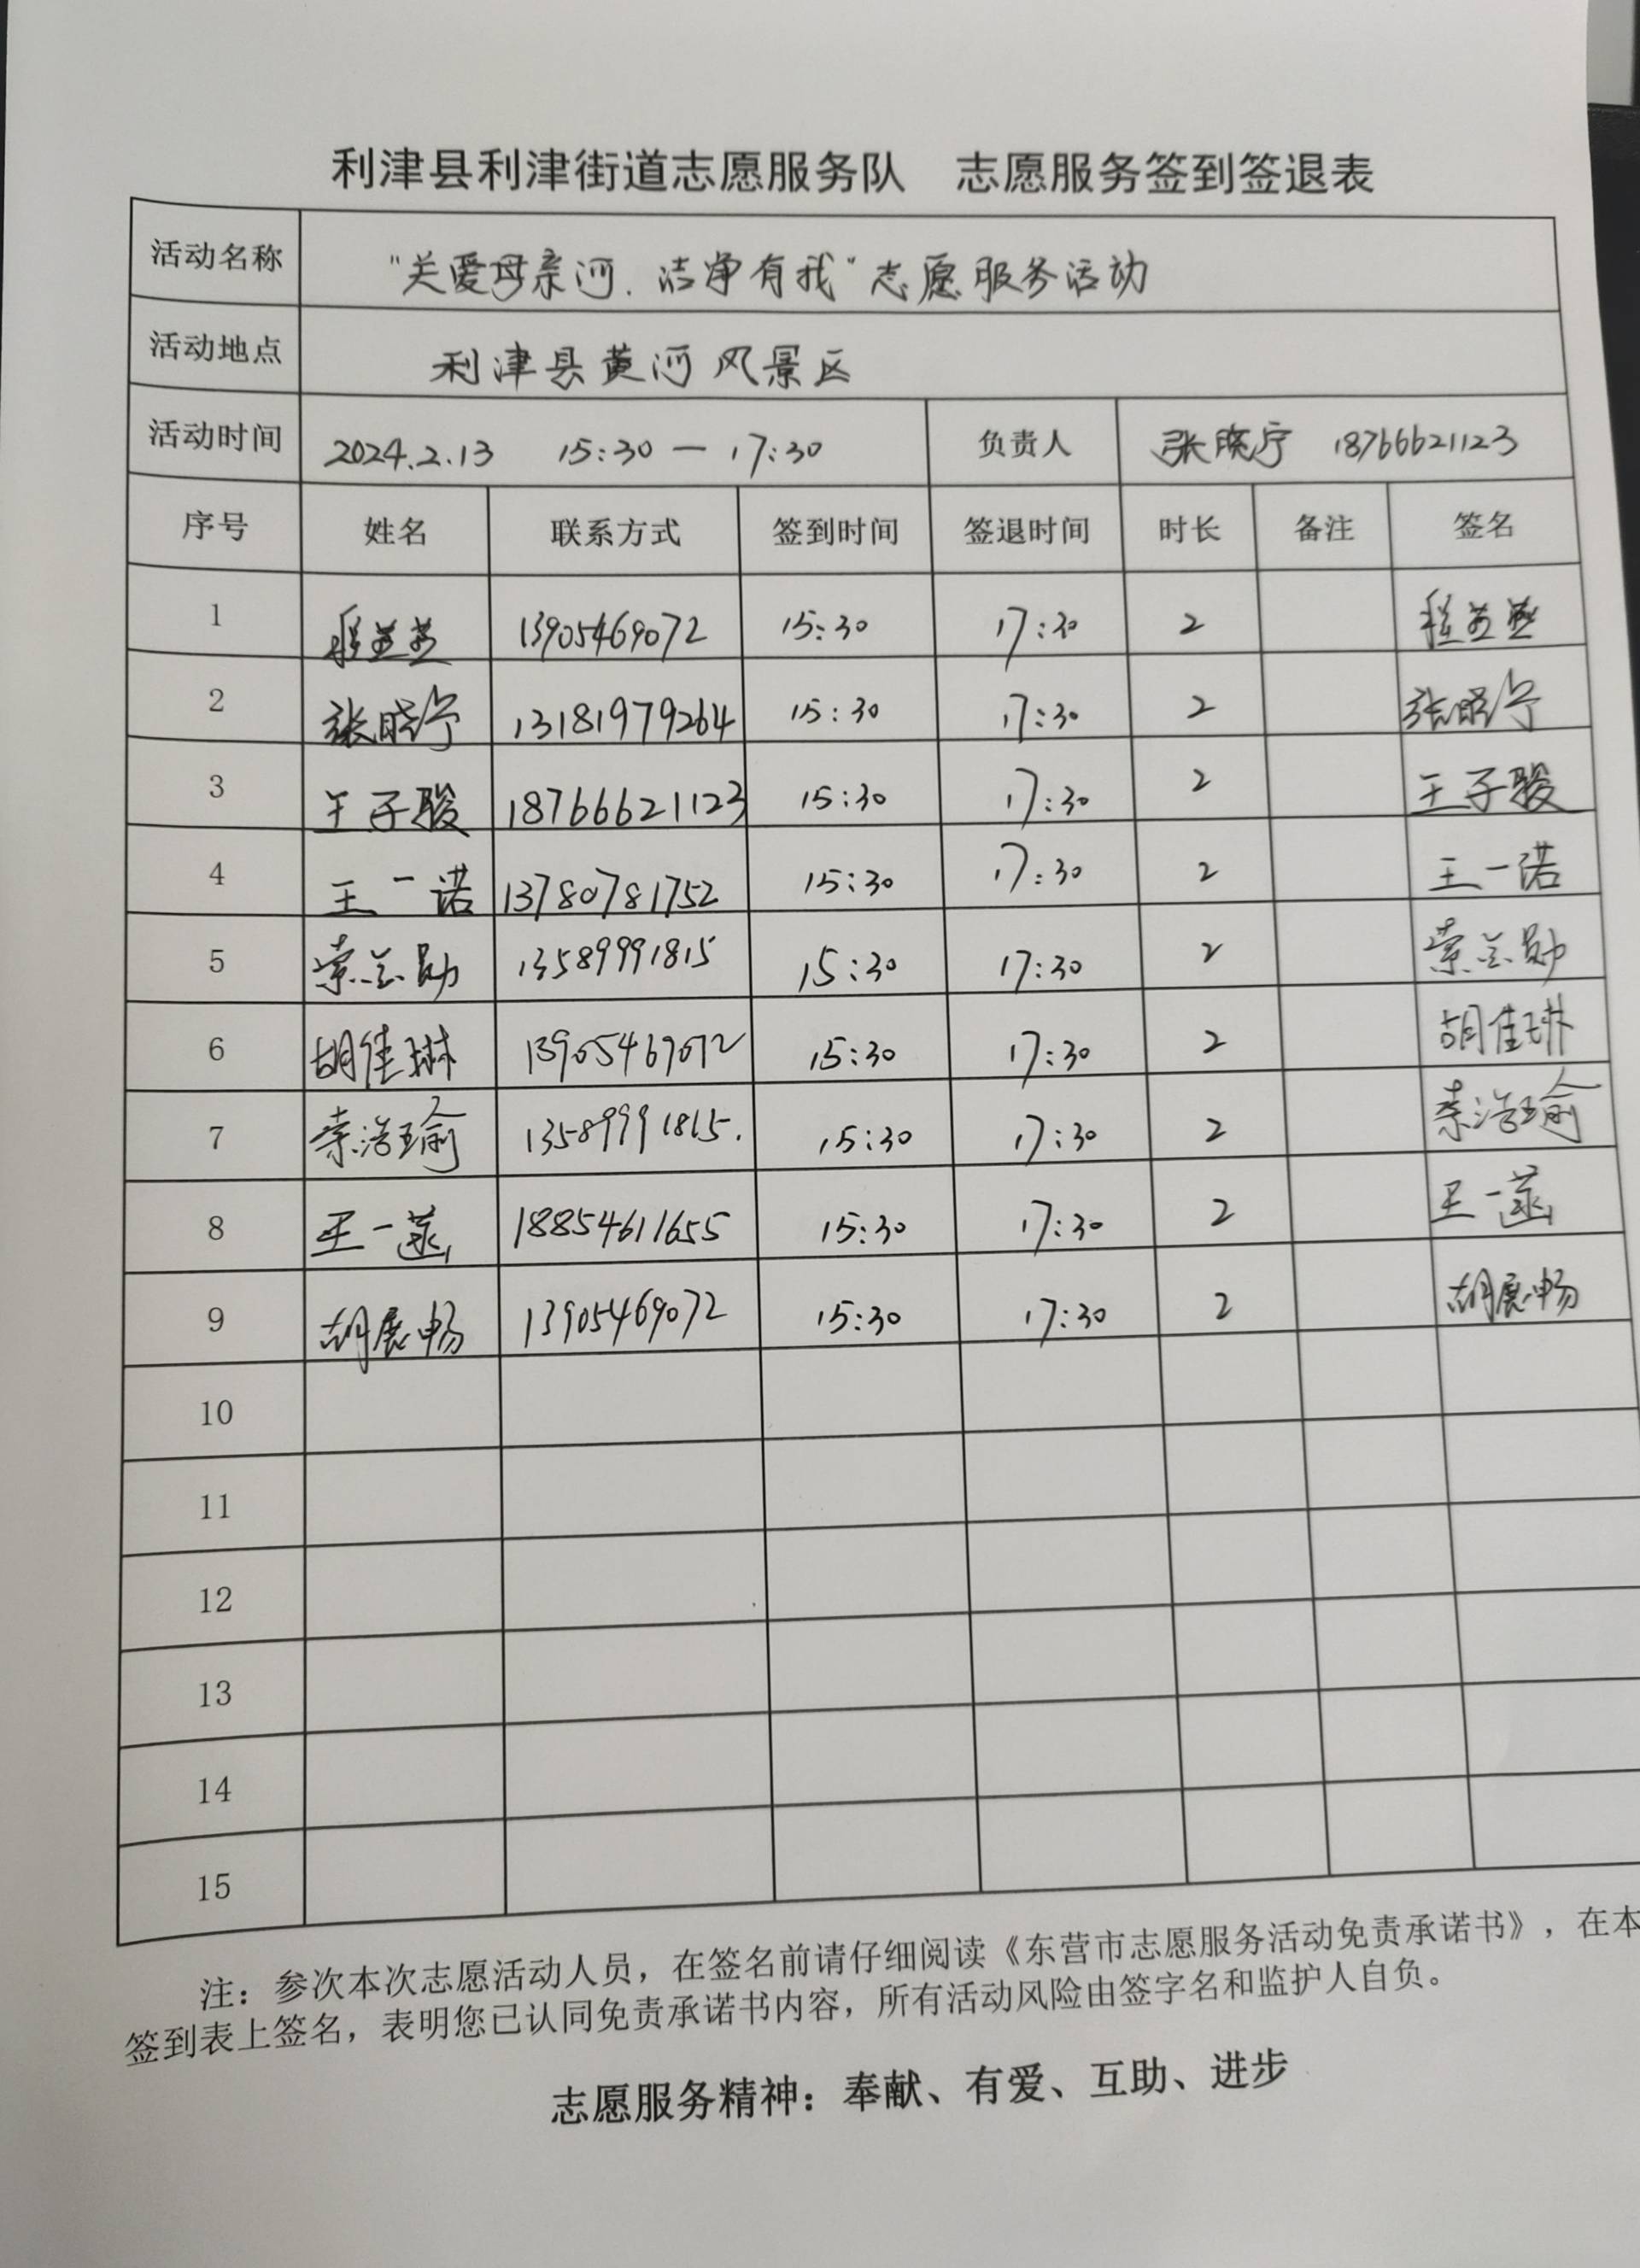 利津县利津街道志愿服务队 志愿服务签到签退表
活动名称 "关爱母亲河.洁净有我"志愿服务活动
活动地点 利津县黄河风景区
活动时间 2024.2.13 15:30—17:30 负责人 张晓宁 18766621123
序号 姓名 联系方式 签到时间 签退时间 时长 备注 签名
1 13905469072 15:30 17:30 2
2 张晓宁 13181979264 15:30 17:30 2 张晓宁
3 王子骏 18766621123 15:30 17:30 2 王子骏
4 王一诺 13780781752 15:30 17:30 2 王一诺
5 13589991815 15:30 17:30 2
6 胡佳琳 13905469072 15:30 17:30 2 胡佳琳
7 索浩瑜 13589991815. 15:30 17:30 2 索浩瑜
8 王一 18854611655 15:30 17:30 2 王一
9 胡展畅 13905469072 15:30 17:30 2 胡展畅
10
11
12
13
14
15
注：参次本次志愿活动人员，在签名前请仔细阅读《东营市志愿服务活动免责承诺书》，在本
签到表上签名，表明您已认同免责承诺书内容，所有活动风险由签字名和监护人自负。
志愿服务精神：奉献、有爱、互助、进步